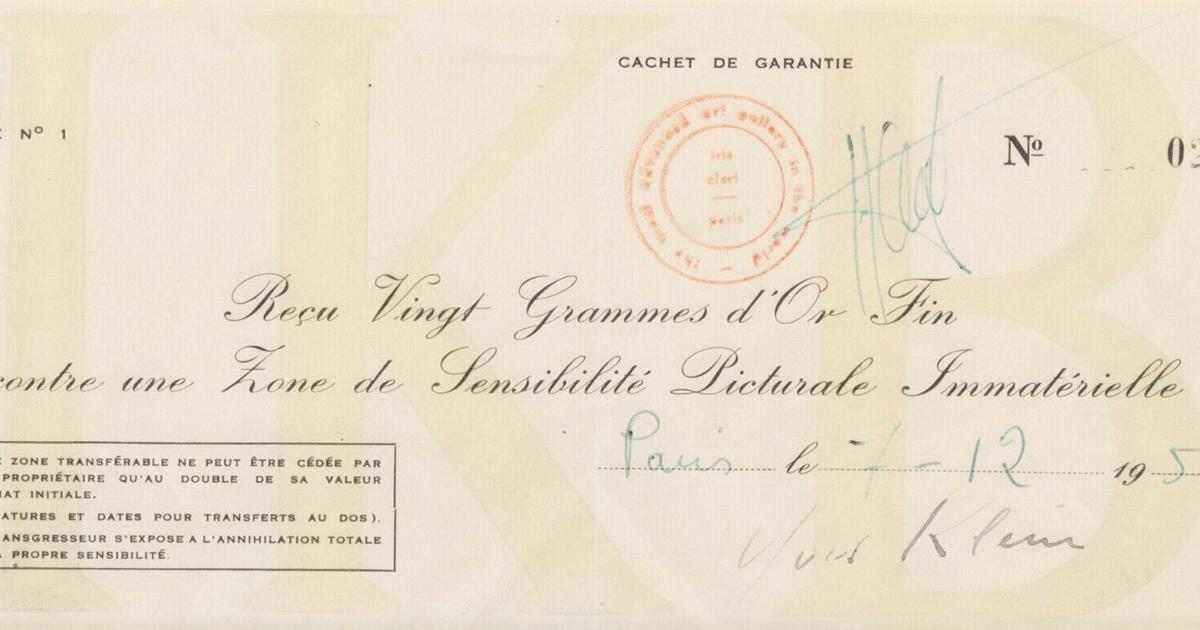 CACHET DE GARANTIE
Nº 1
the most advanced art gallery in the world –
iris
clert
paris
Nº 02
Reçu Vingt Grammes d'Or Fin
contre une Zone de Sensibilité Picturale Immatérielle
Paris le 7-12 195
Yves Klein
ZONE TRANSFÉRABLE NE PEUT ÊTRE CÉDÉE PAR
PROPRIÉTAIRE QU'AU DOUBLE DE SA VALEUR
AT INITIALE.
ATURES ET DATES POUR TRANSFERTS AU DOS).
ANSGRESSEUR S'EXPOSE A L'ANNIHILATION TOTALE
PROPRE SENSIBILITÉ.
IKB